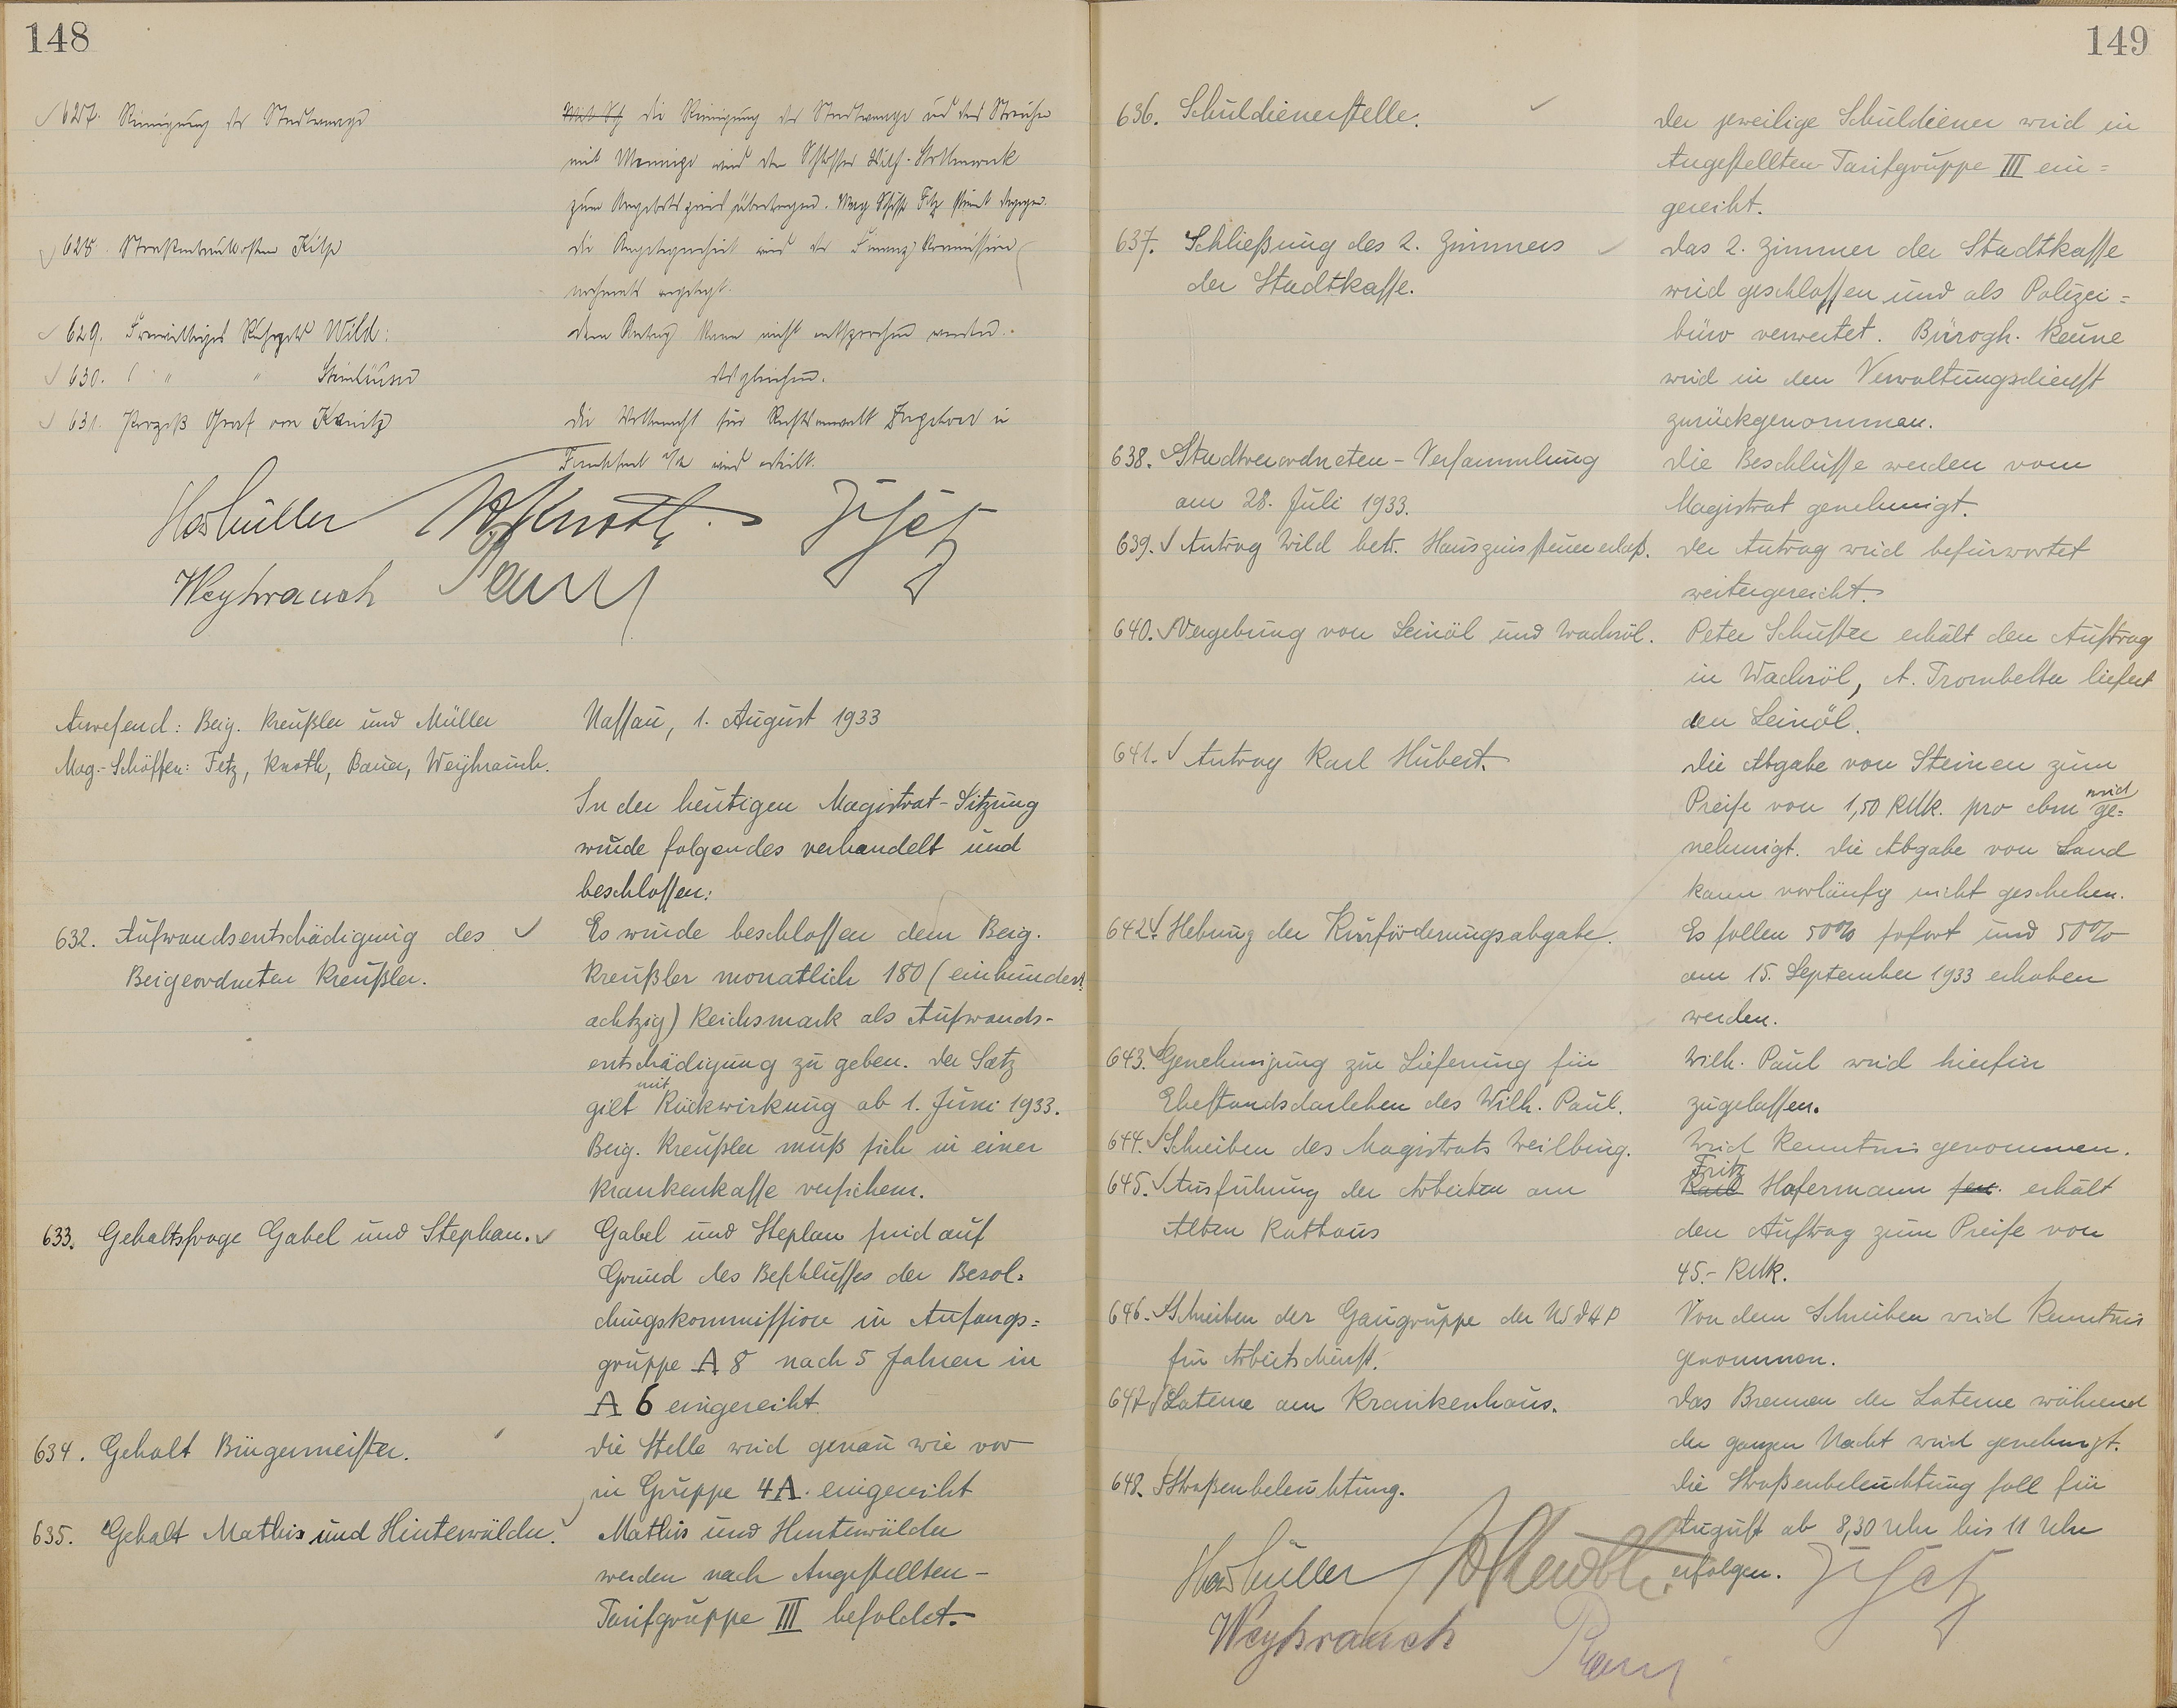 148
627. Reinigung der Stadtwaage
die Reinigung der Stadtwaage und das Streichen
mit Mennige wird dem Schlosser Wilh.
zum Angebotspreis übertragen. Mag. Schöffe Fetz stimmt dagegen.
628. Straßenbaukosten
die Angelegenheit wird der Finanz-Kommission
nochmals vorgelegt.
629. Freiwilliges Ruhegeld Wild:
dem Antrag kann nicht entsprochen werden.
630. " " Steinhäuser
desgleichen.
631. Prozeß Graf von Kanitz
die Vollmacht für Rechtsanwalt in
Frankfurt a/M wird erteilt.
Weyhrauch
Anwesend: Beig. Kreußler und Müller
Mag.-Schöffen: Fetz, Knoth, Bauer, Weyhrauch.
Nassau, 1. August 1933
In der heutigen Magistrat-Sitzung
wurde folgendes verhandelt und
beschlossen:
632. Aufwandsentschädigung des
Beigeordneten Kreußler.
Es wurde beschlossen dem Beig.
Kreußler monatlich 180 (einhundert
achtzig) Reichsmark als Aufwands-
entschädigung zu geben. Der Satz
gilt mit Rückwirkung ab 1. Juni 1933.
Beig. Kreußler muß sich in einer
Krankenkasse versichern.
633. Gehaltsfrage Gabel und Stephan.
Gabel und Stephan sind auf
Grund des Beschlusses der Besol-
dungskommission in Anfangs=
gruppe A 8 nach 5 Jahren in
A 6 eingereiht.
634. Gehalt Bürgermeister.
Die Stelle wird genau wie vor
in Gruppe 4A. eingereiht
635. Gehalt Mathis und Hinterwälder.
Mathis und Hinterwälder
werden nach Angestellten-
Tarifgruppe III besoldet.
149
636. Schuldienerstelle.
Der jeweilige Schuldiener wird in
Angestellten-Tarifgruppe III ein=
gereiht.
637. Schließung des 2. Zimmers
der Stadtkasse.
Das 2. Zimmer der Stadtkasse
wird geschlossen und als Polizei=
büro verwertet. Bürogh. Keune
wird in den Verwaltungsdienst
zurückgenommen.
638. Stadtverordneten-Versammlung
am 28. Juli 1933.
Die Beschlüsse werden vom
Magistrat genehmigt.
639. Antrag Wild betr. Hauszinssteuererlaß.
Der Antrag wird befürwortet
weitergereicht.
640. Vergebung von Leinöl und Wachsöl.
Peter Schuster erhält den Auftrag
in Wachsöl, A. Trombelta liefert
den Leinöl.
641. Antrag Karl Hubert.
Die Abgabe von Steinen zum
Preise von 1,50 RMk. pro cbm wird ge=
nehmigt. Die Abgabe von Sand
kann vorläufig nicht geschehen.
642. Hebung der Kurförderungsabgabe.
Es sollen 50% sofort und 50%
am 15. September 1933 erhoben
werden.
643. Genehmigung zur Lieferung für
Ehestandsdarlehen des Wilh. Paul.
Wilh. Paul wird hierfür
zugelassen.
644. Schreiben des Magistrats Weilburg.
Wird Kenntnis genommen.
645. Ausführung der Arbeiten am
Alten Rathaus
Fritz
Karl Hofermann sen. erhält
den Auftrag zum Preise von
45.- RMk.
646. Schreiben der Gaugruppe der NSDAP
für Arbeitsdienst.
Von dem Schreiben wird Kenntnis
genommen.
647. Laterne am Krankenhaus.
Das Brennen der Laterne während
der ganzen Nacht wird genehmigt.
648. Straßenbeleuchtung.
Die Straßenbeleuchtung soll für
August ab 8,30 Uhr bis 11 Uhr
erfolgen.
Weyhrauch